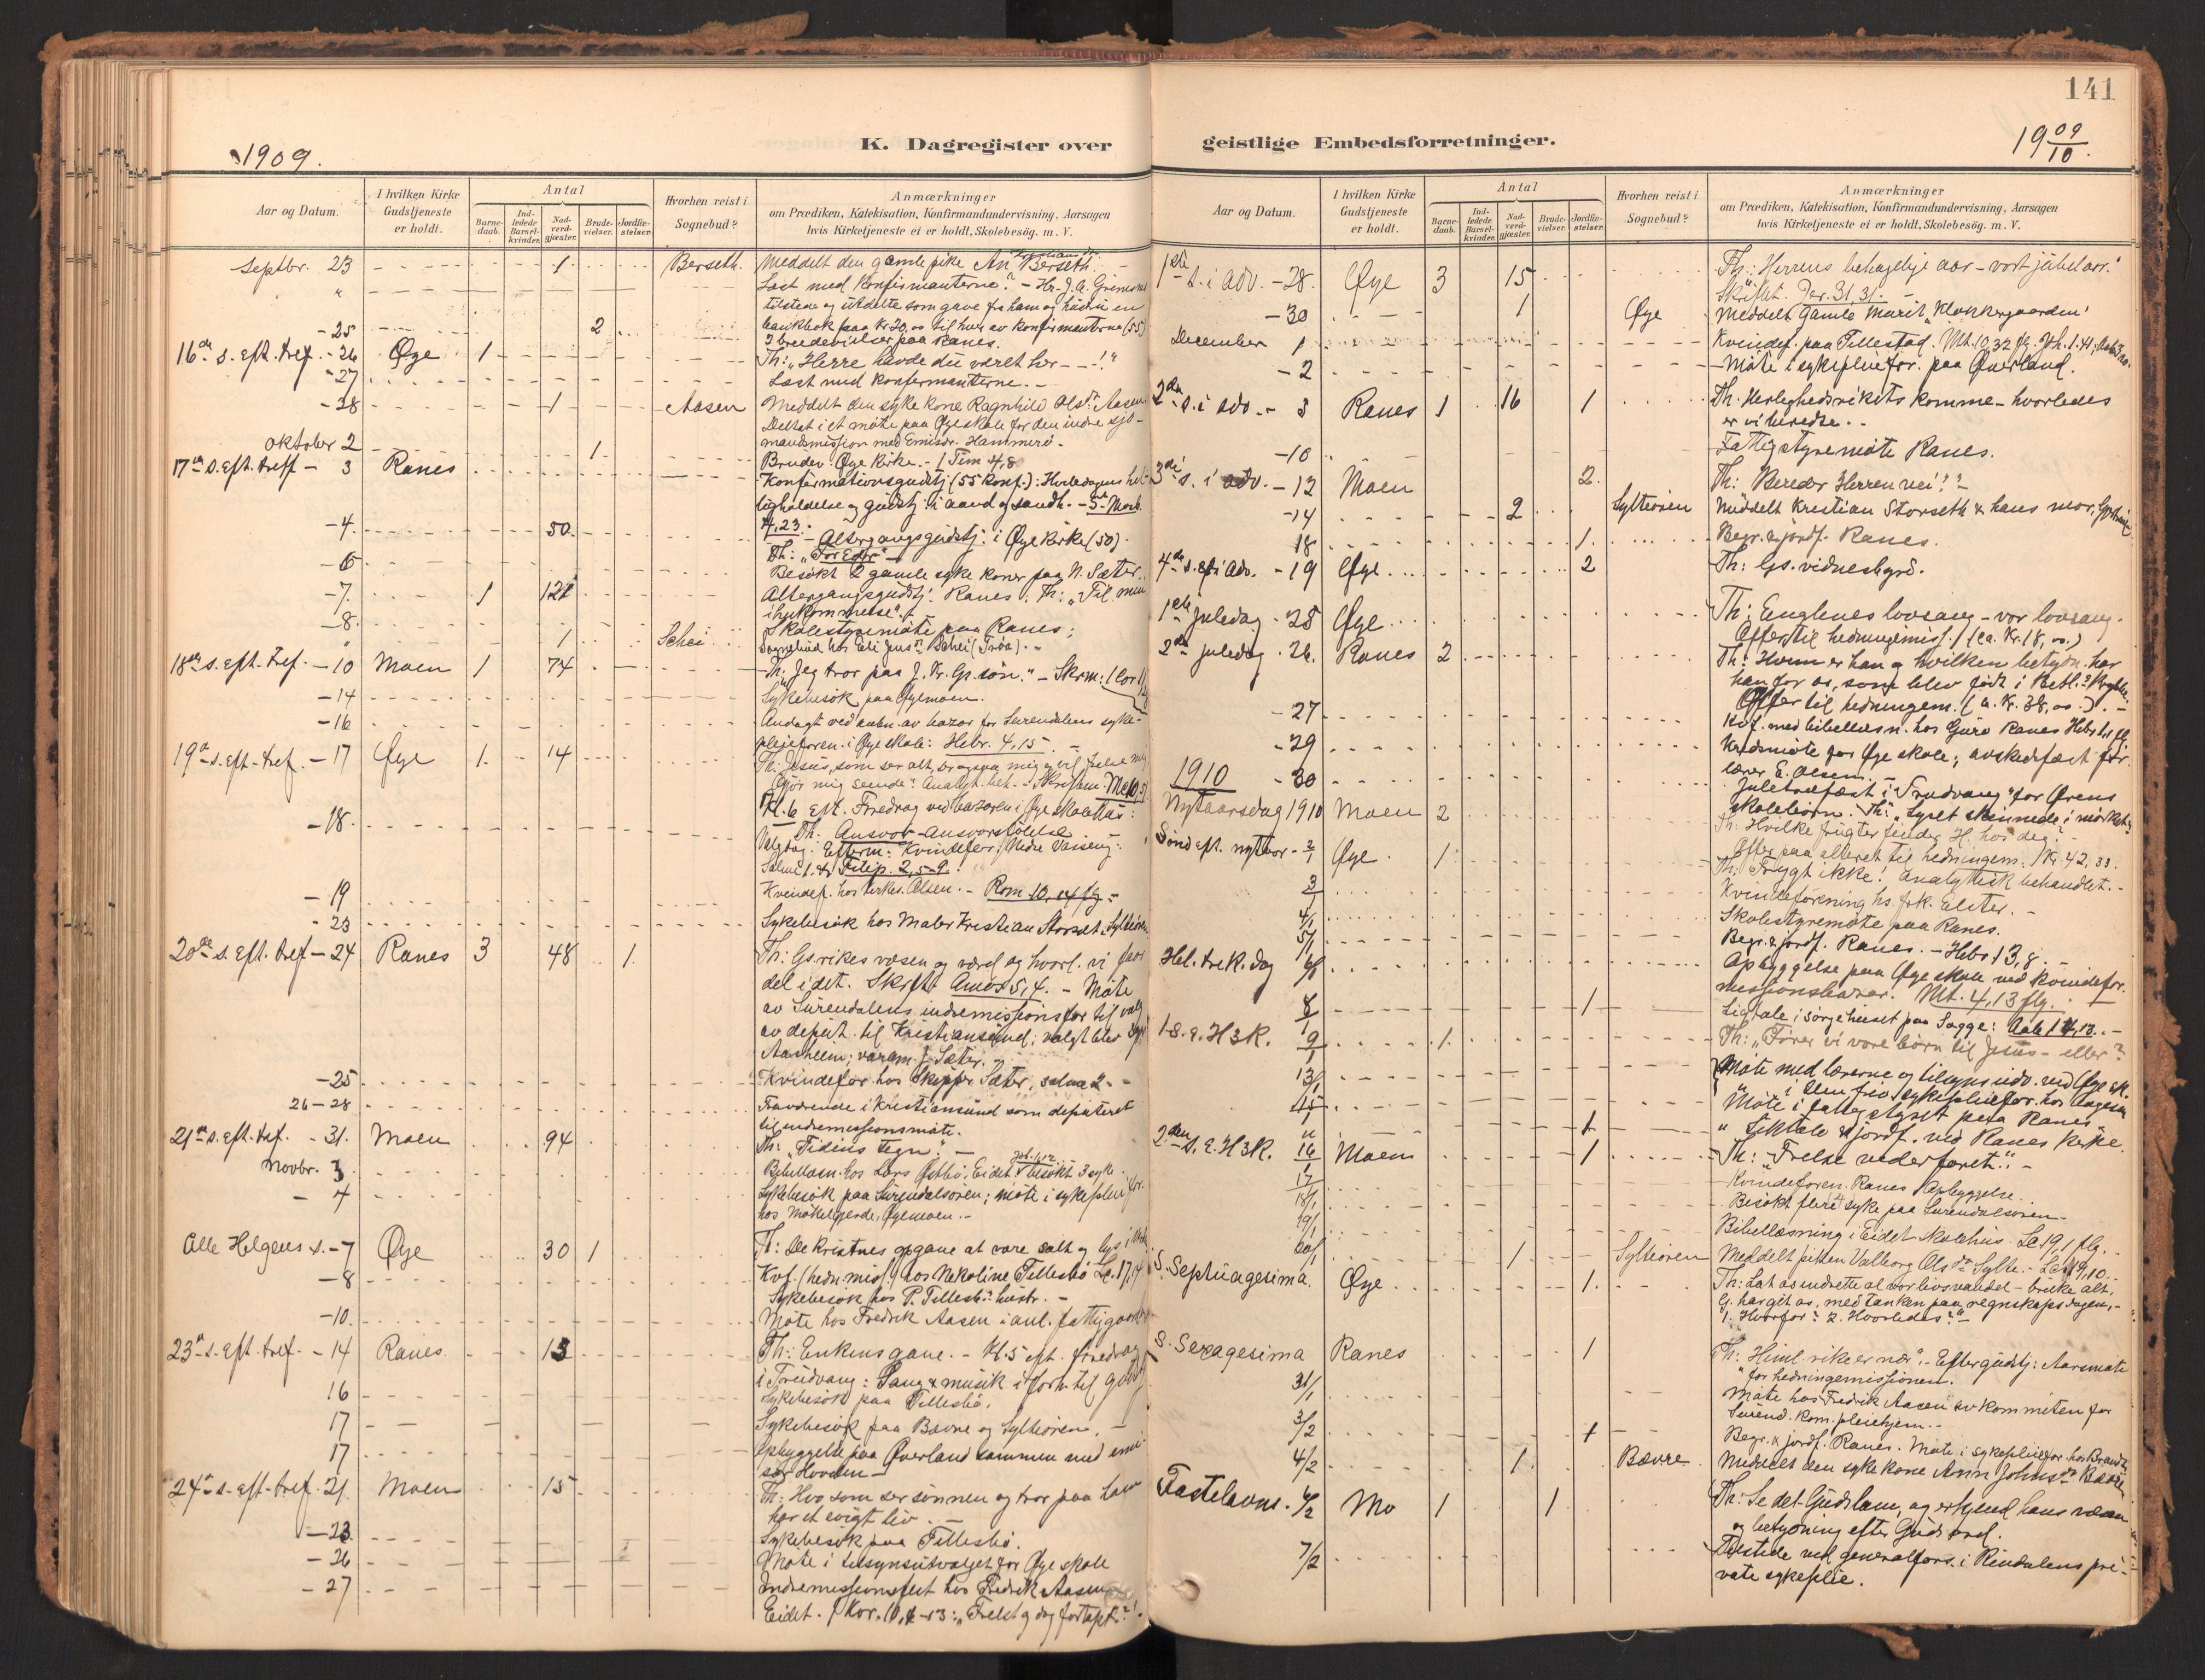 1909.
K. Dagregister over
Aar og Datum.
I hvilken Kirke Gudstjeneste er holdt.
Antal
Barne-daab.
Ind-ledede Barsel-kvinder.
Nad-verd-gjæster.
Brude-vielser.
Jordfæ-stelser.
Hvorhen reist i Sognebud?
Anmærkninger
om Prædiken, Katekisation, Konfirmandundervisning, Aarsagen
hvis Kirketjeneste ei er holdt, Skolebesög. m. V.
Septbr. 23 1 Berseth. Meddelt den gamle pike An Berseth.
" Læst med Konfirmanterne. - Hr. J. A. Grimsmo
tilstede og utdelte som gave fra ham og hustru en
bankbok paa Kr 20,00 til hver av konfirmanterne (55)
- 25 2 2 brudevielser paa Ranes.
16de s. eft. tref. - 26 Øye 1 Th: "Herre havde du været her - - !"
- 27 Læst med konfirmanterne. -
- 28 1 Aasen Meddelt den syke kone Ragnhild Olsdr Aasen
Deltat i et møte paa Øye skole for den indre sjö-
mandsmission med Emisær. Hammerö -
Oktober 2 1 Brudev. Øye Kirke. - 1 Tim 4,8
17de s. eft. tref - 3 Ranes Konfirmationsgudstj (55 konf.): Hviledagens hel-
ligholdelse og gudstj. i aand og sandh. - 5te Moseb.
4,23.
- 4. 50 - Altergangsgudstj. i Øye Kirke (50).
Th: "For Eder" -
- 6 Besökt 2 gamle syke koner paa N. Sæter.
- 7. 1 121 Altergangsgudstj. Ranes. Th: "Til min
ihukommelse". -
- 8. Skolestyremöte paa Ranes;
" 1 Schei Sognebud hos Eli Jensdr Schei (Tröa). -
18de s. eft. tref. - 10 Moen 1 74 Th: "Jeg tror paa J. Kr. Gs. sön." - Skrm: 1 Cor 11
- 14 Sykebesök paa Øyemoen.
- 16 Andagt ved aabn. av bazar for Surendalens syke-
pleieforen. i Øye skole: Hebr. 4,15 -
19de s. eft. tref. - 17 Øye 1. 14 Th: Jesus, som ser alt,
gjör mig seende: Analyt. beh.
Kl. 6 eft. Foredrag ved bazaren i Øye skolehus:
- 18. Th: Ansvar - Ansvarsfölelse
Valgdag. Efterm: Kvindefor. Nedre Væseng.
Filip. 2, 5-9.
- 19 Kvindef. hos kirkes. Olsen. - Rom 10,14 flg -
- 23 Sykebesök hos Maler Kristian Storset, Sylteören
20de s. eft. tref - 24 Ranes 3 48 1. Th: Gs. rikes væsen og værd og hvorl. vi faar
del i det. Skrift Amos 5,4. - Möte
av Surendalens indremissionsfor. til valg
av deput. til Kristiansund; valgt blev
Aasheim; varam. J. Sæter.
- 25 Kvindefor. hos skipper Sæter, salme 2. -
26 - 28 Fraværende i Kristiansund som deputeret
til indremissionsmöte.
21de s. eft. tref. - 31. Moen 94 Th: "Tidens tegn". -
Novbr. 3 Bibellæsn. hos Lars Østbö, Eidet & besökt 3 syke
- 4 Sykebesök paa Surendalsören; möte i sykepleiefor.
hos Mökelgjerde, Øyemoen. -
Alle Helgens s. - 7 Øye 30 1 Th: De kristnes opgave at være salt og lys i
- 8 Kvf. (hedn. mis.) hos Nekoline Tellesbö Lc. 17,4
Sykebesök hos P. Tellesbö hustr. -
- 10. Möte hos Fredrik Aasen i anl. fattiggaarden
23de s. eft. tref. - 14 Ranes. 13 Th: Enkens gave. - Kl. 5 eft. foredrag
i Trudvang: Sang & musik i forh. til gudstj
16 Sykebesök paa Tellesbö.
17 Sykebesök paa Bævre og Sylteören. -
17 Opbyggelse paa Øverland sammen med emi-
sær Hovden -
24de s. eft. tref. 21. Moen 15 Th: Hvo, som ser sönnen og tror paa ham
har et evigt liv. -
- 23. Sykebesök paa Tellesbö.
- 26 Möte i tilsynsutvalget for Øye skole
- 27 Indremissionsfest hos Fredrik Aasen
Eidet. 1 Kor. 10, - 13: "Frelst og dog fortapt?".
141
geistlige Embedsforretninger.
19 09/10.
Aar og Datum.
I hvilken Kirke Gudstjeneste er holdt.
Antal
Barne-daab.
Ind-ledede Barsel-kvinder.
Nad-verd-gjæster.
Brude-vielser.
Jordfæ-stelser.
Hvorhen reist i Sognebud?
Anmærkninger
om Prædiken, Katekisation, Konfirmandundervisning, Aarsagen
hvis Kirketjeneste ei er holdt, Skolebesög. m. V.
1ste s. i adv. - 28. Øye 3 15 Th: Herrens behagelige aar - vort jubelaar.
Skriftet. Jer. 31,31. -
- 30 1 Øye Meddelt gamle Marit "Klokkergaarden"
December 1 Kvindef. paa Tellestad. Mt. 10,32 flg. Joh. 1.41,
- 2 - Möte i sykepleiefor. paa Øverland.
2den s. i adv. - 5 Ranes 1 16 1 Th: Herlighedsrikets komme - hvorledes
er vi beredte. -
- 10 Fattigstyremöte Ranes.
3die s. i adv. - 12 Moen 2. Th: Bereder Herren vei! -
- 14 2 Sylteören Meddelt Kristian Storseth & hans mor,
18 1. Begr. & jordf. Ranes.
4de s. i Adv. - 19 Øye 2 Th: Gs. vidnesbyrd.
1ste juledag - 25 Øye Th: Englenes lovsang - vor lovsang.
Offer til hedningemis. (ca. Kr. 18,00)
2den juledag - 26. Ranes 2 Th: Hvem er han og hvilken betydn. har
han for os, som blev födt i Betl.?
Offer til hedningem. (ca. Kr. 38,00). -
- 27 Kvf. med bibellæsn. hos Guro Ranes
- 29 Kredsmöte for Øye skole; avskedsfæst for
lærer E. Olsen. -
1910 - 30 Juletræfæst i "Trudvang" for Ørens
skolebörn. Th: "Lyset skinnede i mörket"
Nytaarsdag 1910 Moen 2 Th: Hvilke frugter finder H. hos deg?
Offer paa alteret til hedningem. Kr. 42,33.
Sönd. eft. nytaar - 2/1 Øye. 1 Th: Frygt ikke! Analytisk behandlet. -
3/1 Kvindeforening hs. frk. Elster. -
4/1 Skolestyremöte paa Ranes.
5/1 Begr. & jordf. Ranes. - Hebr 13,8. -
Hel. tre k. dag 6/1 Opbyggelse paa Øye skole ved kvindefor.
missionsbazar. Mt. 4,13 flg.
8/1 1 Ligtale i sörgehuset paa Sogge:
1 s. e. H 3 K. 9/1 1. Th: "Förer vi vore börn til Jesus - eller?
13/1 Möte med lærerne og tilsynsudv. ved Øye sk.
15/1 Möte i fattigstyret paa Ranes
" 1 " Liktale & jordf. ved Ranes kirke.
2den s. e. H 3 K. 16/1 Moen 1 Th: "Frelse vederfaret". -
17/1 Kvindeforen. Ranes Opbyggelse.
18/1 Besökt flere syke paa Surendalsören.
19/1 Bibellæsning i Eidet Skolehus. Lc 19,1 flg. -
20/1 1 Sylteören Meddelt piken Valborg Olsdr Sylte. - Lc. 19,10. -
S. Septuagesima. Øye 1. Th: Lat os indrette al vor livsvandel - bruke alt,
G. har git os, med tanken paa regnskapsdagen, -
1. Hvorfor? 2. Hvorledes? -
S. Sexagesima Ranes 1 Th: "Himl. rike er nær". - Efter gudstj: Aarsmöte
for hedningemissionen.
31/1 Möte hos Fredrik Aasen av komiteen for
Surend. kom. pleiehjem. -
3/2 1 Begr. & jordf. Ranes. Möte i sykepleiefor. hos
4/2 1 Bævre. Meddelt den syke kone Ann Johnsdr Bævre
Fastelavns. 6/2 Mo 1 1 Th: Se det Guds lam, og erkjend hans væsen
og betydning efter Guds ord.
7/2 Tilstede ved generalfors. i Rindalens pri-
vate sykepleie.